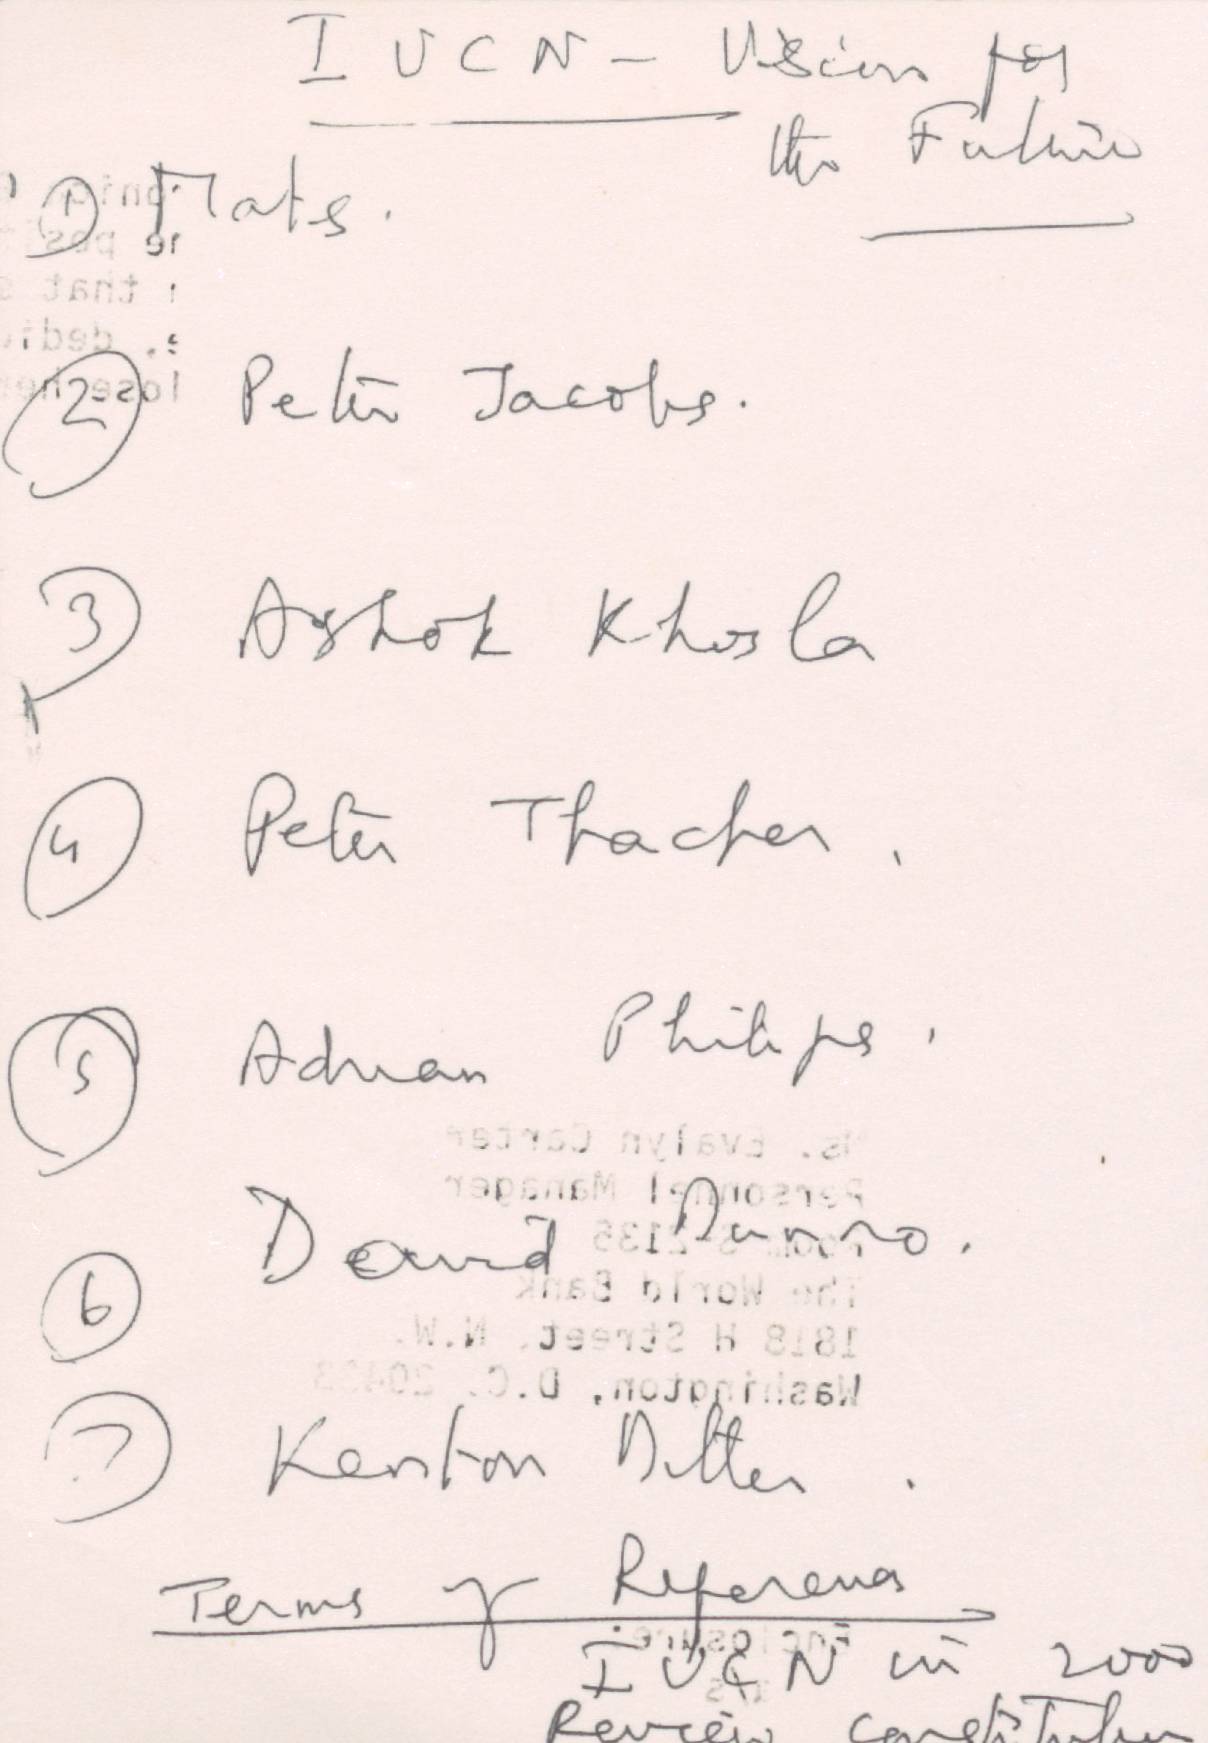 IUCN - Vision for
the Future
① Mats.
② Peter Jacobs.
③ Ashok Khosla
④ Peter Thacher.
⑤ Adrian Philips.
Ms. Evalyn Carter
Personnel Manager
⑥ David Munro.
Room S-2135
The World Bank
1818 H Street, N.W.
Washington, D.C. 20433
⑦ Kenton Miller.
Terms of References
Enclosure:
IUCN in 2000
Review constitution